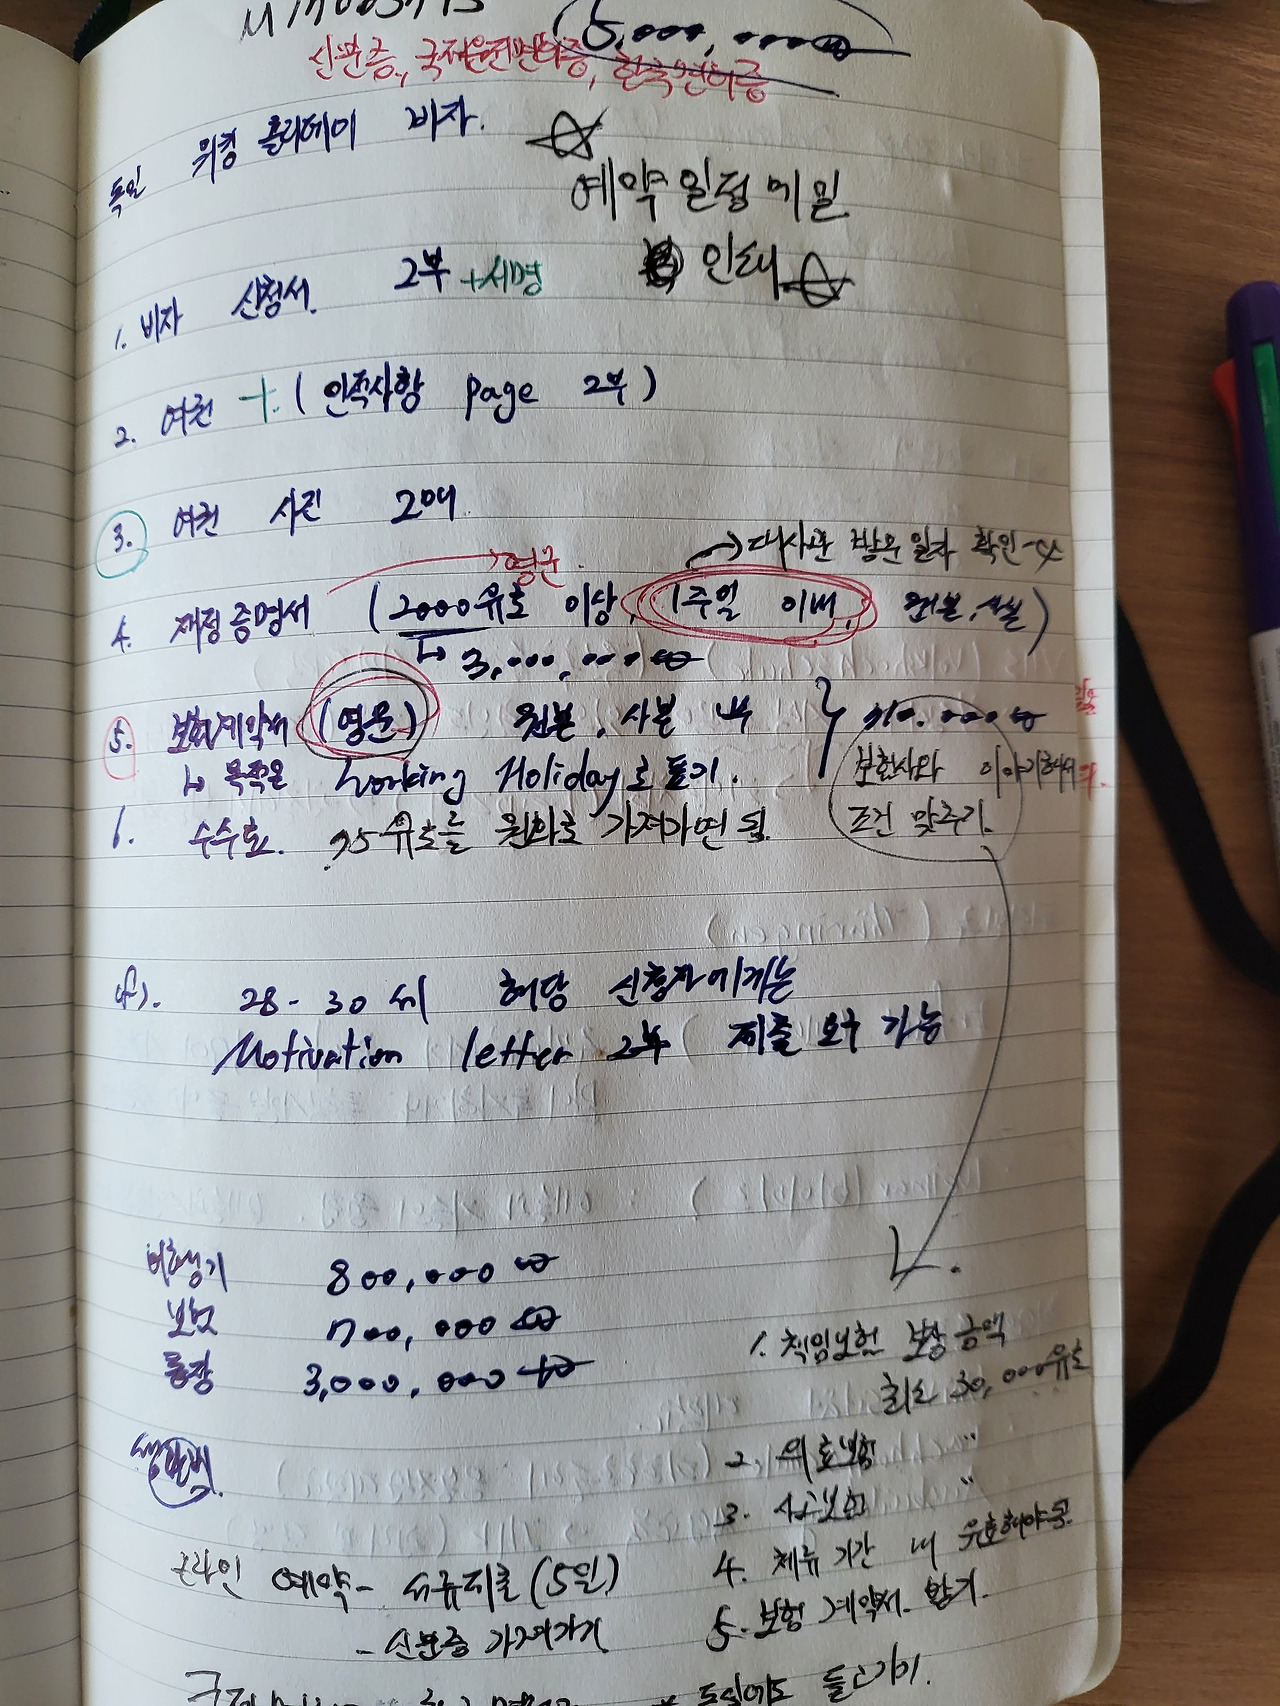 5,000,000
신분증, 국제운전면허증, 한국면허증
독일 워킹 홀리데이 비자.
예약 일정 메일
인쇄
1. 비자 신청서. 2부 +서명
2. 여권 + (인적사항 page 2부)
3. 여권 사진 2매
→ 영문. → 대사관 방문 일자 확인
4. 재정증명서 (2000유로 이상, 1주일 이내, 원본, 사본)
↳ 3,000,000원
5. 보험계약서 (영문) 원본, 사본
↳ 목적은 Working Holiday로 들기.
보험사와 이야기해서
조건 맞추기.
6. 수수료. 75유로를 원화로 가져가면 됨.
28-30세 해당 신청자에게는
Motivation letter 2부 제출 요구 가능
비행기 800,000원
보험 700,000원
통장 3,000,000원
생활비.
1. 책임보험 보상 금액
최소 30,000유로
2. 의료보험 〃
3. 사고보험 〃
4. 체류 기간 내 유효해야 함.
5. 보험 계약서. 받기.
온라인 예약 - 서류제출 (5일)
- 신분증 가져가기
독일에도 들고가기.